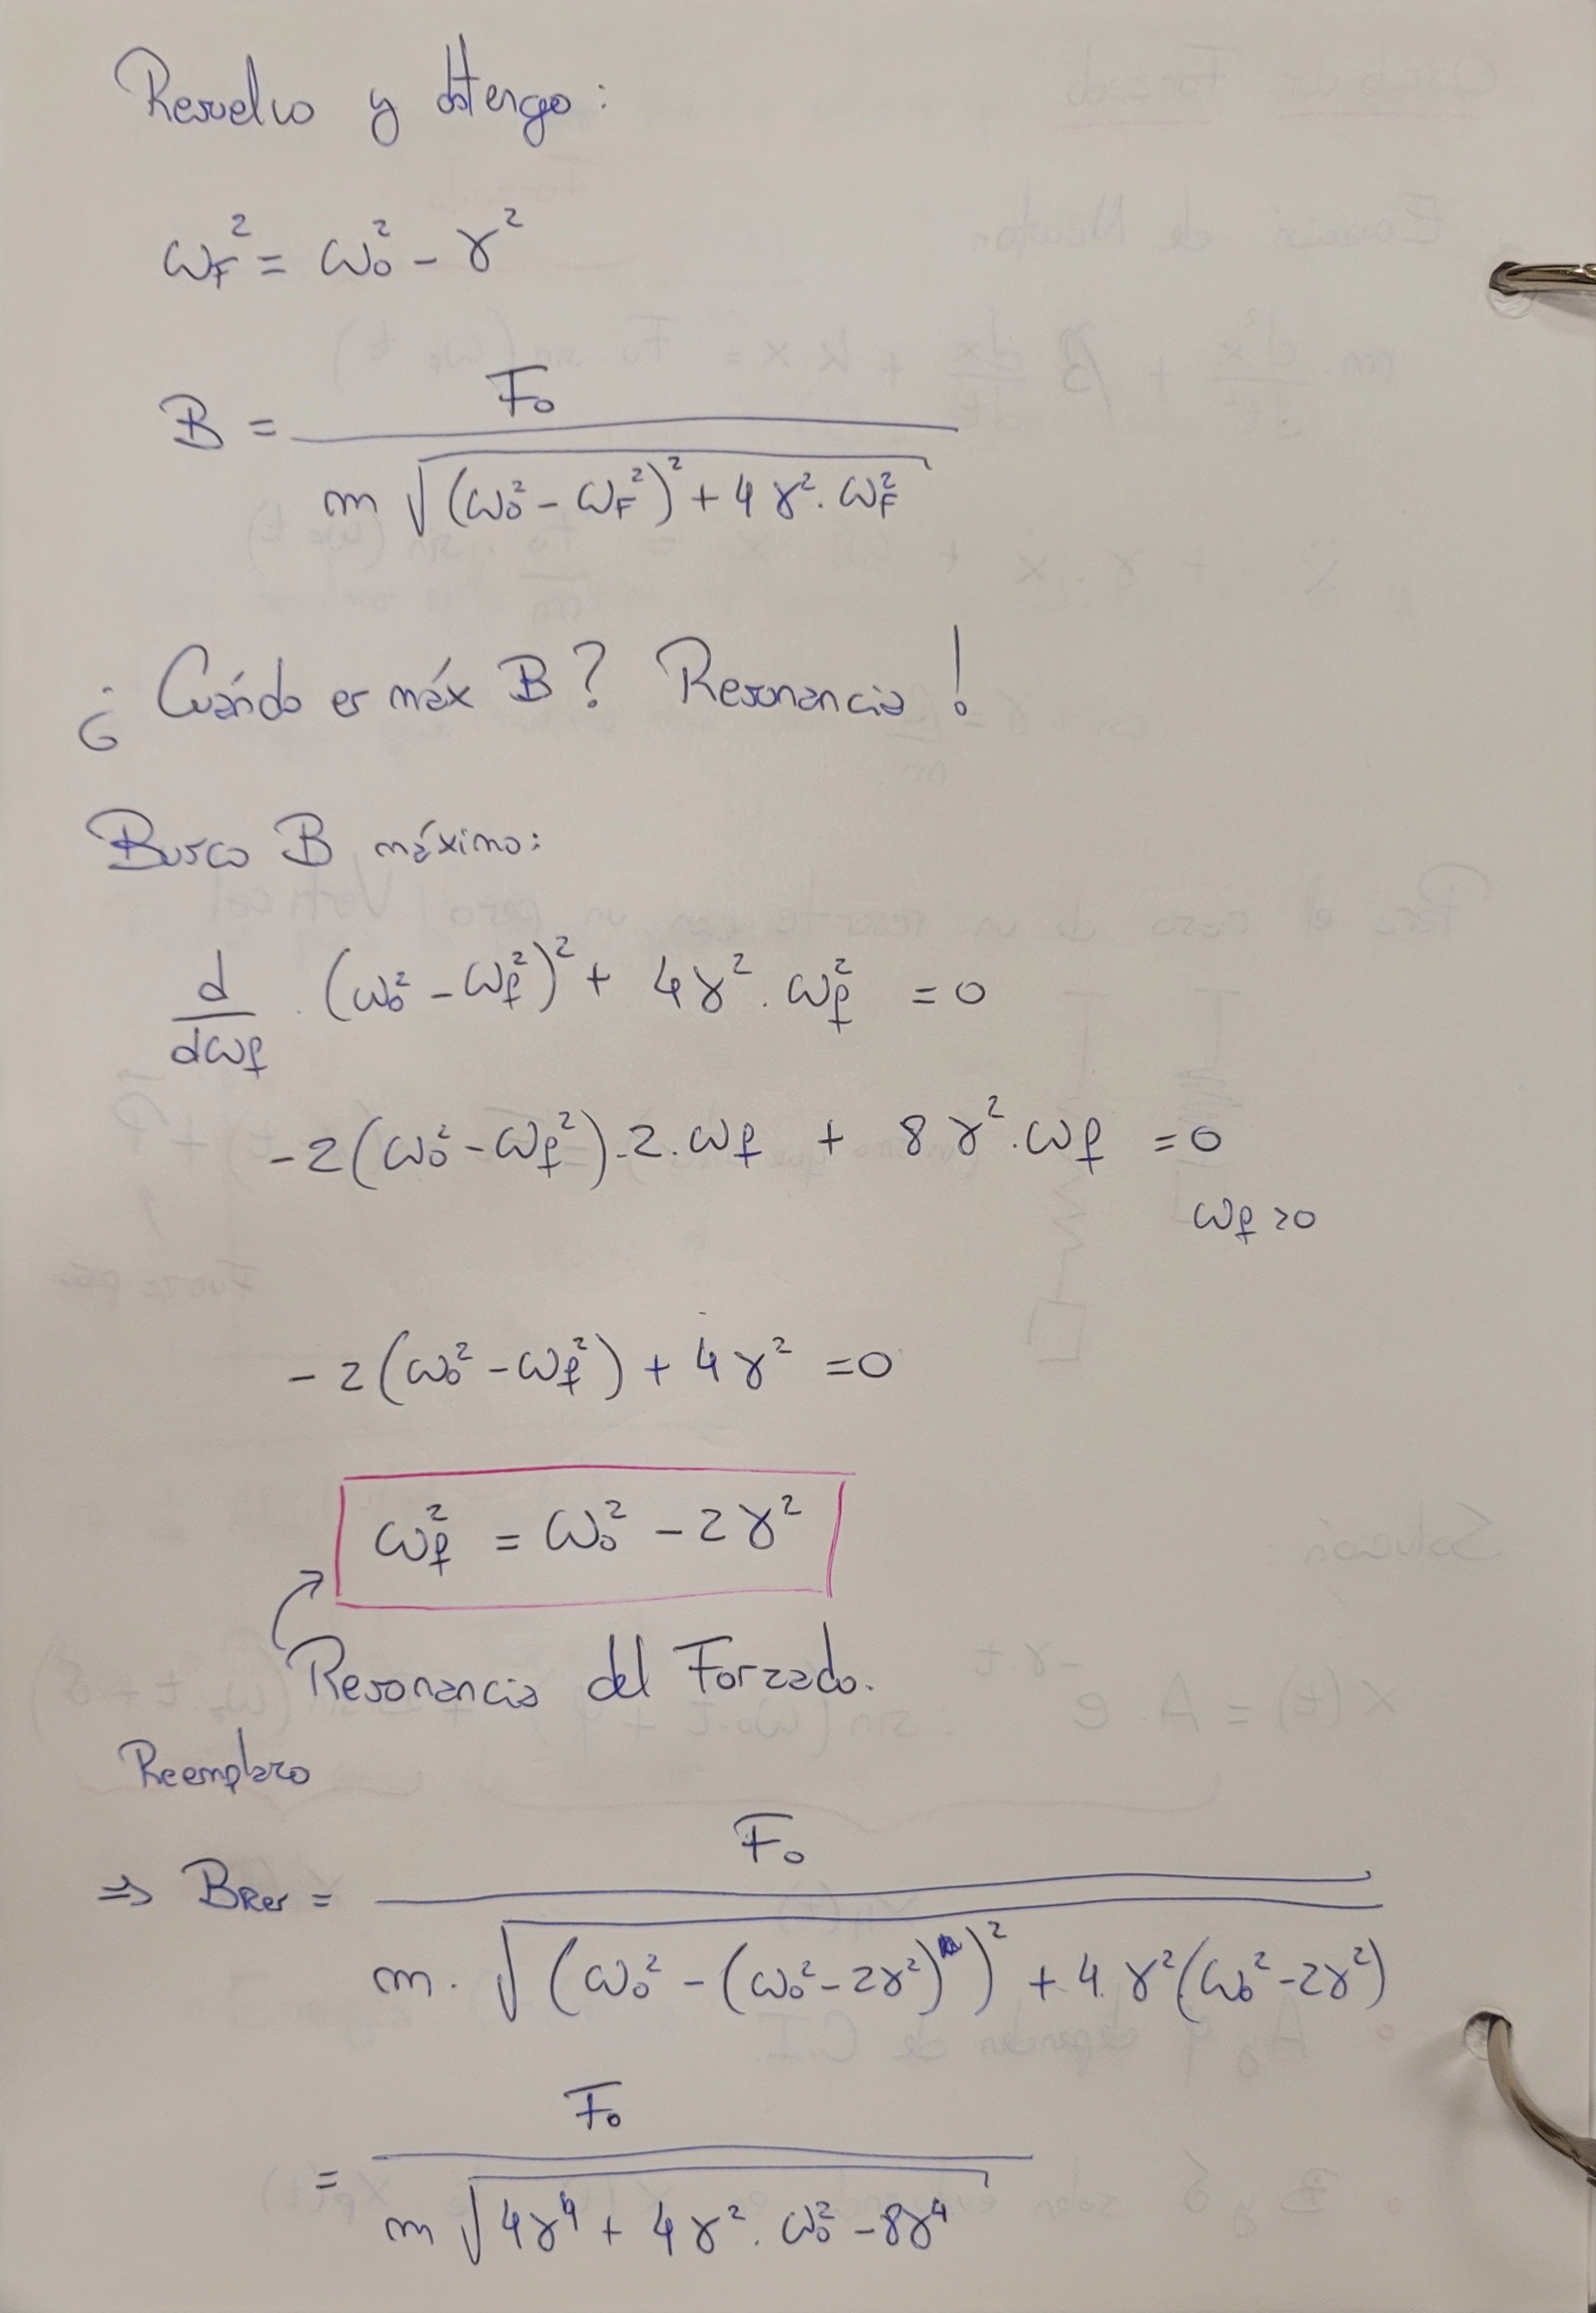 Resuelvo y obtengo:
ω_F² = ω₀² - γ²
B = F₀ / (m √((ω₀² - ω_F²)² + 4γ² . ω_F²))
¿Cuándo es máx B? Resonancia!
Busco B máximo:
d/dω_f . (ω₀² - ω_f²)² + 4γ² . ω_f² = 0
-2(ω₀² - ω_f²) . 2 . ω_f + 8γ² . ω_f = 0
ω_f > 0
-2(ω₀² - ω_f²) + 4γ² = 0
ω_f² = ω₀² - 2γ²
Resonancia del Forzado.
Reemplazo
⇒ B_Res = F₀ / (m . √((ω₀² - (ω₀² - 2γ²))² + 4 γ²(ω₀² - 2γ²)))
= F₀ / (m √(4γ⁴ + 4γ² . ω₀² - 8γ⁴))